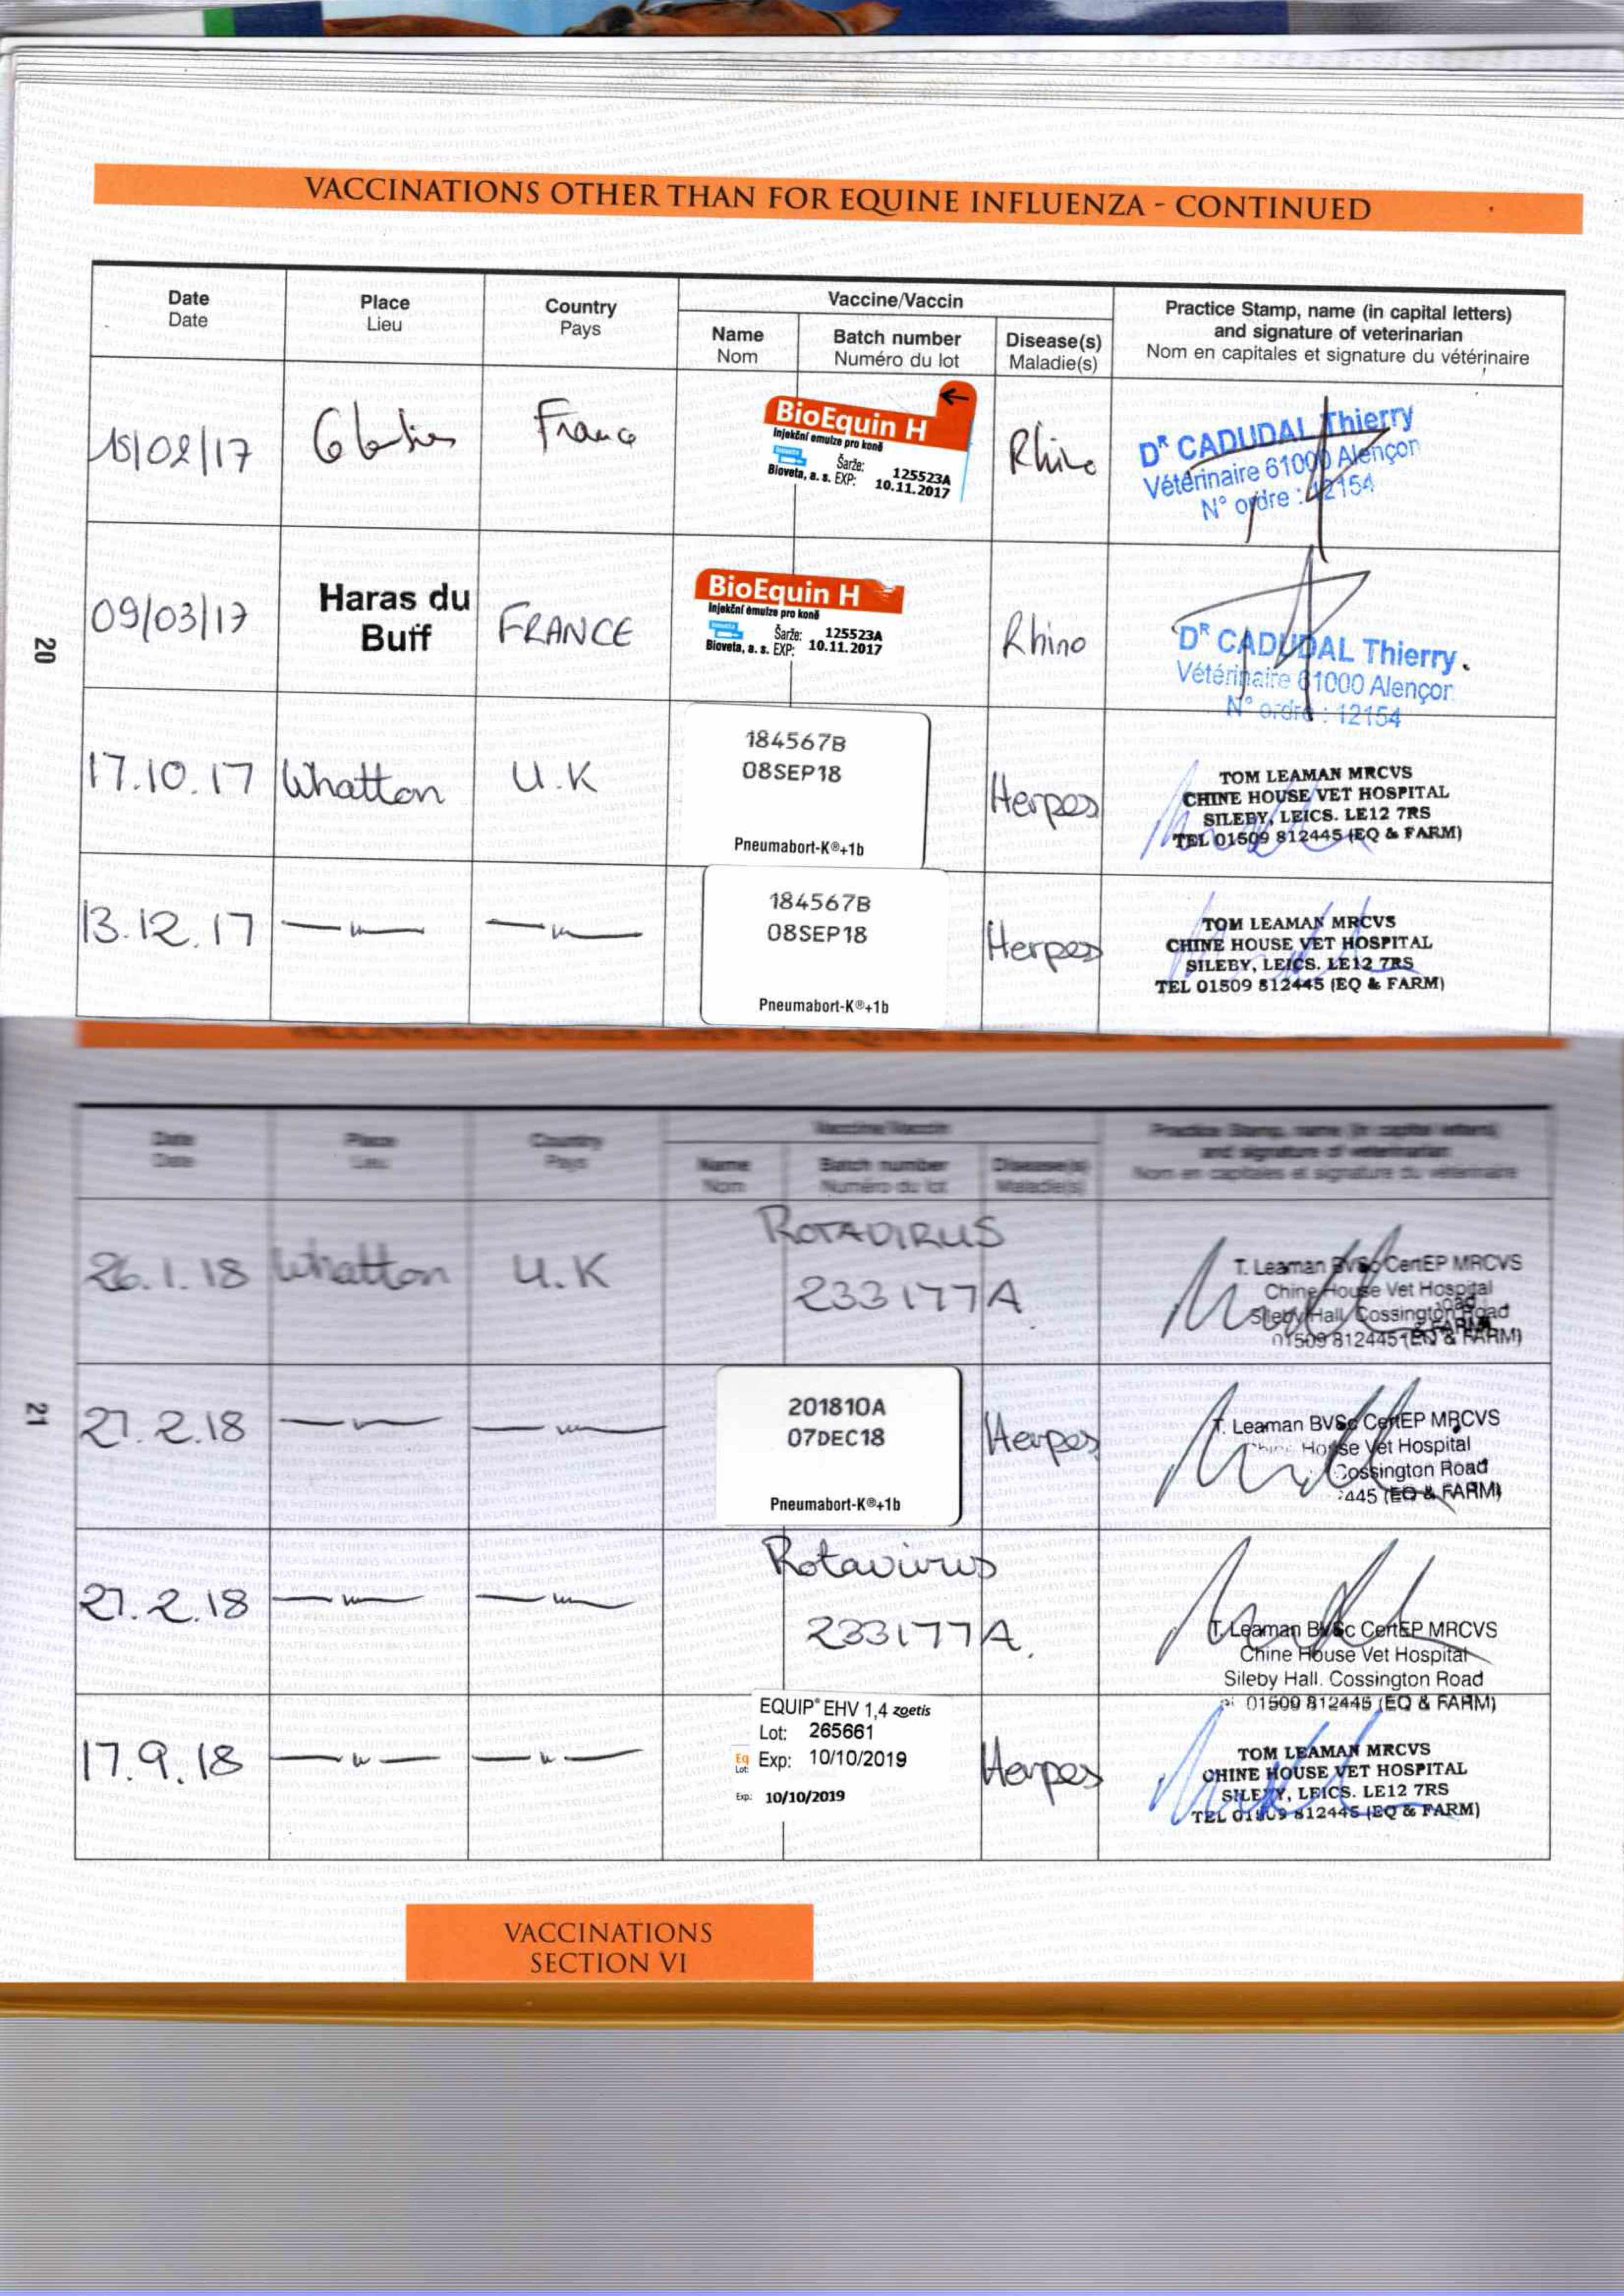 VACCINATIONS OTHER THAN FOR EQUINE INFLUENZA - CONTINUED
Date Place Country Vaccine/Vaccin Practice Stamp, name (in capital letters)
Date Lieu Pays and signature of veterinarian
Name Batch number Disease(s) Nom en capitales et signature du vétérinaire
Nom Numéro du lot Maladie(s)
15/02/17 France Rhino
BioEquin H
Injekční emulze pro koně
Bioveta
Šarže: 125523A
Bioveta, a. s. EXP: 10.11.2017
DR CADUDAL Thierry
Vétérinaire 61000 Alençon
N° ordre : 12154
20
09/03/17 Haras du Buff FRANCE Rhino
BioEquin H
Injekční emulze pro koně
Bioveta
Šarže: 125523A
Bioveta, a. s. EXP: 10.11.2017
DR CADUDAL Thierry.
Vétérinaire 61000 Alençon
N° ordre : 12154
17.10.17 Whatton U.K Herpes
184567B
08SEP18
Pneumabort-K®+1b
TOM LEAMAN MRCVS
CHINE HOUSE VET HOSPITAL
SILEBY, LEICS. LE12 7RS
TEL 01509 812445 (EQ & FARM)
13.12.17 —"— —"— Herpes
184567B
08SEP18
Pneumabort-K®+1b
TOM LEAMAN MRCVS
CHINE HOUSE VET HOSPITAL
SILEBY, LEICS. LE12 7RS
TEL 01509 812445 (EQ & FARM)
Date Place Country Vaccine/Vaccin Practice Stamp, name (in capital letters)
Date Lieu Pays and signature of veterinarian
Name Batch number Disease(s) Nom en capitales et signature du vétérinaire
Nom Numéro du lot Maladie(s)
26.1.18 Whatton U.K
ROTAVIRUS
233177A
T. Leaman BVSc CertEP MRCVS
Chine House Vet Hospital
Sileby Hall, Cossington Road
01509 812445 (EQ & FARM)
21
27.2.18 —"— —"— Herpes
201810A
07DEC18
Pneumabort-K®+1b
T. Leaman BVSc CertEP MRCVS
Chine House Vet Hospital
Cossington Road
445 (EQ & FARM)
27.2.18 —"— —"—
Rotavirus
233177A.
T. Leaman BVSc CertEP MRCVS
Chine House Vet Hospital
Sileby Hall. Cossington Road
01509 812445 (EQ & FARM)
17.9.18 —"— —"— Herpes
EQUIP® EHV 1,4 zoetis
Lot: 265661
Eq Exp: 10/10/2019
Lot:
Exp: 10/10/2019
TOM LEAMAN MRCVS
CHINE HOUSE VET HOSPITAL
SILEBY, LEICS. LE12 7RS
TEL 01509 812445 (EQ & FARM)
VACCINATIONS
SECTION VI